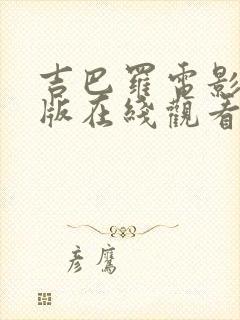 吉巴羅電影
版在綫觀看
彥鷹